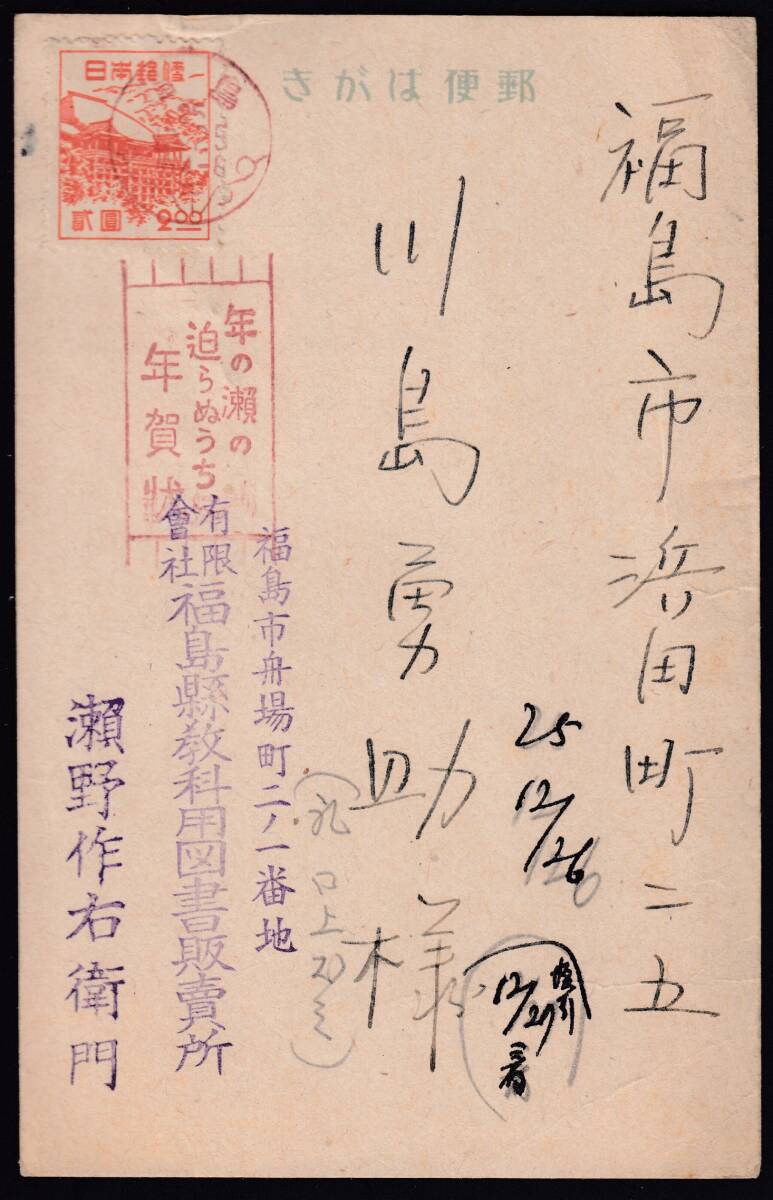 郵便はがき
日本郵便
貳圓 2.00
島
福島市浜田町二五
川島勇助様
25
12/26
12/27
着
年の瀬の
迫らぬうち
年賀状
福島市舟場町二ノ一番地
有限
會社
福島縣教科用図書販賣所
瀬野作右衛門